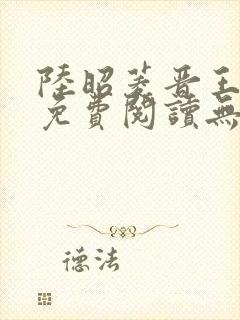 陸昭菱晋王
免費閱讀無
德法